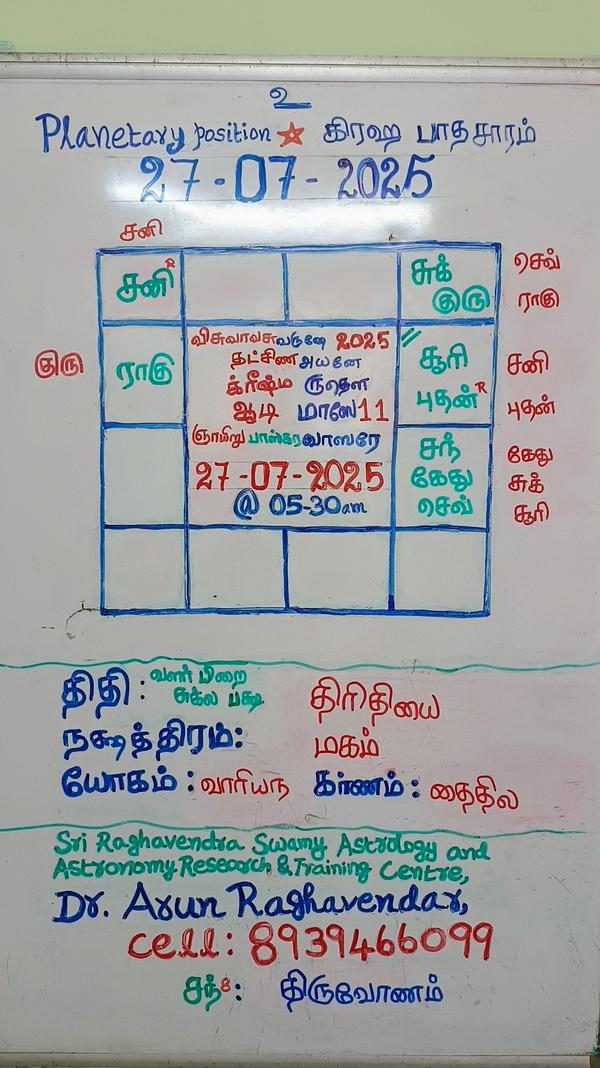 உ
Planetary position கிரஹ பாதசாரம்
27-07-2025
சனி
சனி R
சுக்
குரு
செவ்
ராகு
குரு
ராகு
சூரி
புதன் R
சனி
புதன்
சந்
கேது
செவ்
கேது
சுக்
சூரி
விசுவாவசுவருஷே 2025
தட்சிண அயனே
க்ரீஷ்ம ருதௌ
ஆடி மாஸே 11
ஞாயிறு பாஸ்கரவாஸரே
27-07-2025
@ 05-30am
திதி : வளர் பிறை
சுக்ல பக்ஷ திரிதியை
நக்ஷத்திரம்: மகம்
யோகம் : வாரியந கர்ணம் : தைதில
Sri Raghavendra Swamy Astrology and
Astronomy Research & Training Centre,
Dr. Arun Raghavendar,
Cell: 8939466099
சந் 8 : திருவோணம்